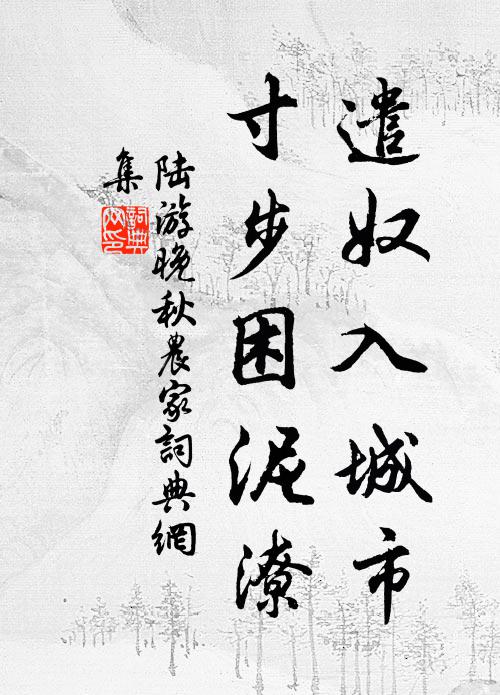 遣奴入城市
寸步困泥潦
陆游晚秋農家詞典網
集
詞典
网印